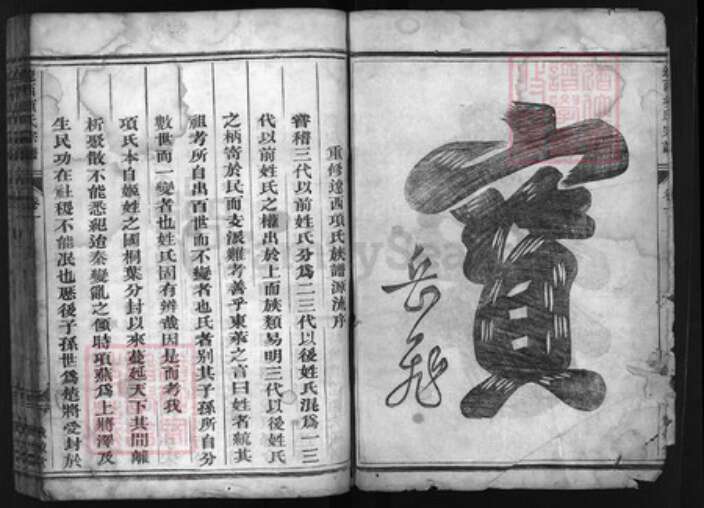 寶
岳飛
重修遼西項氏族譜源流序
嘗稽三代以前姓氏分爲二三代以後姓氏混爲一三
代以前姓氏之權出於上而族類易明三代以後姓氏
之柄寄於民而支派難考善乎東萊之言曰姓者統其
祖考所自出百世而不變者也氏者别其子孫所自分
數世而一變者也姓氏固有辨哉因是而考我
項氏本自姬姓之國桐葉分封以來蔓延天下其間離
析聚散不能悉紀迨秦變亂之傾時項燕爲上將澤及
生民功在社稷不能泯也歷後子孫世爲楚將受封於